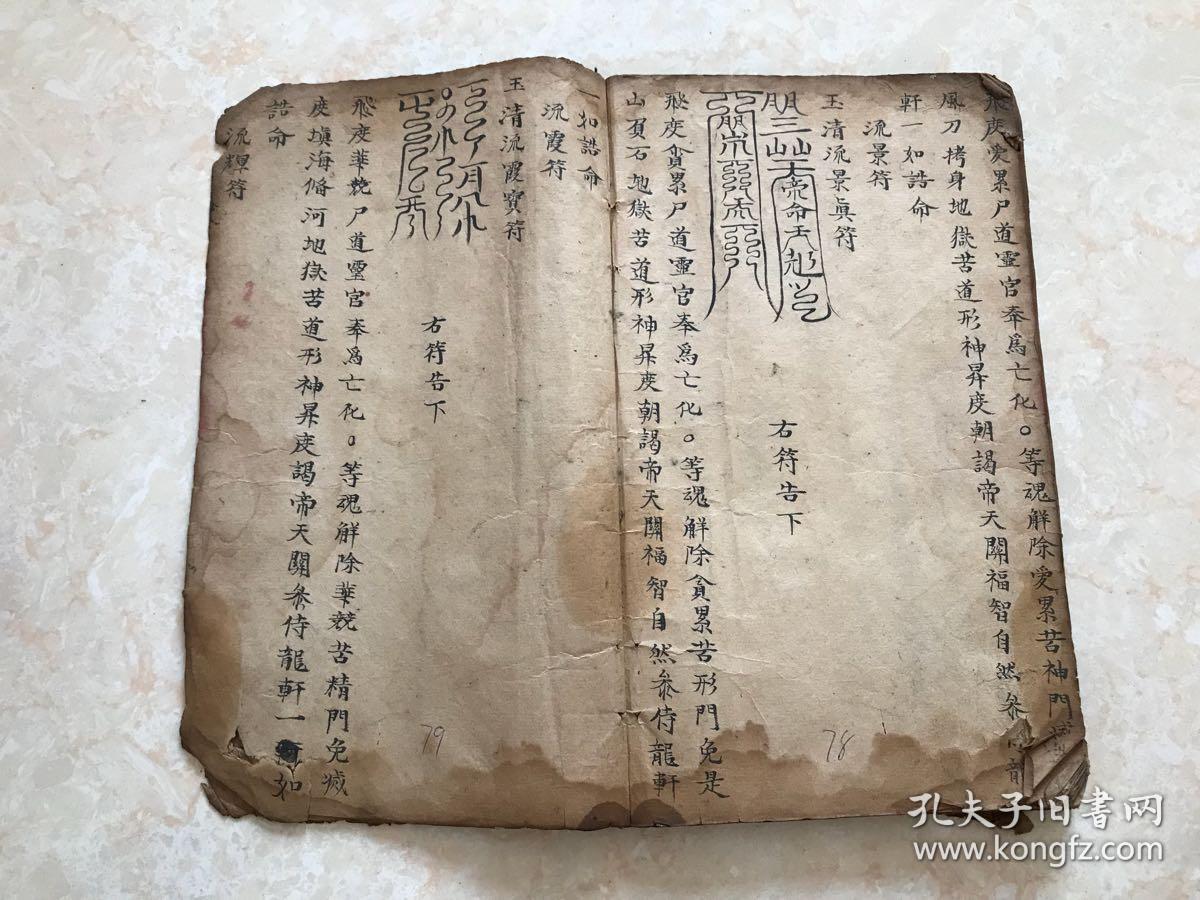 飛度愛累尸道靈官奉爲亡化○等魂解除愛累苦神門
風刀拷身地獄苦道形神昇度朝謁帝天闕福智自然叅
軒一如誥命
流景符
玉清流景真符
右符告下
飛度貪累尸道靈官奉爲亡化○等魂解除貪累苦形門免是
山負石地獄苦道形神昇度朝謁帝天闕福智自然叅侍龍軒
一如誥命
流霞符
玉清流霞寶符
右符告下
飛度華競尸道靈官奉爲亡化○等魂解除華競苦精門免滅
度塡海傋河地獄苦道形神昇度謁帝天闕叅侍龍軒一如
誥命
流輝符
78
79
孔夫子旧书网
www.kongfz.com